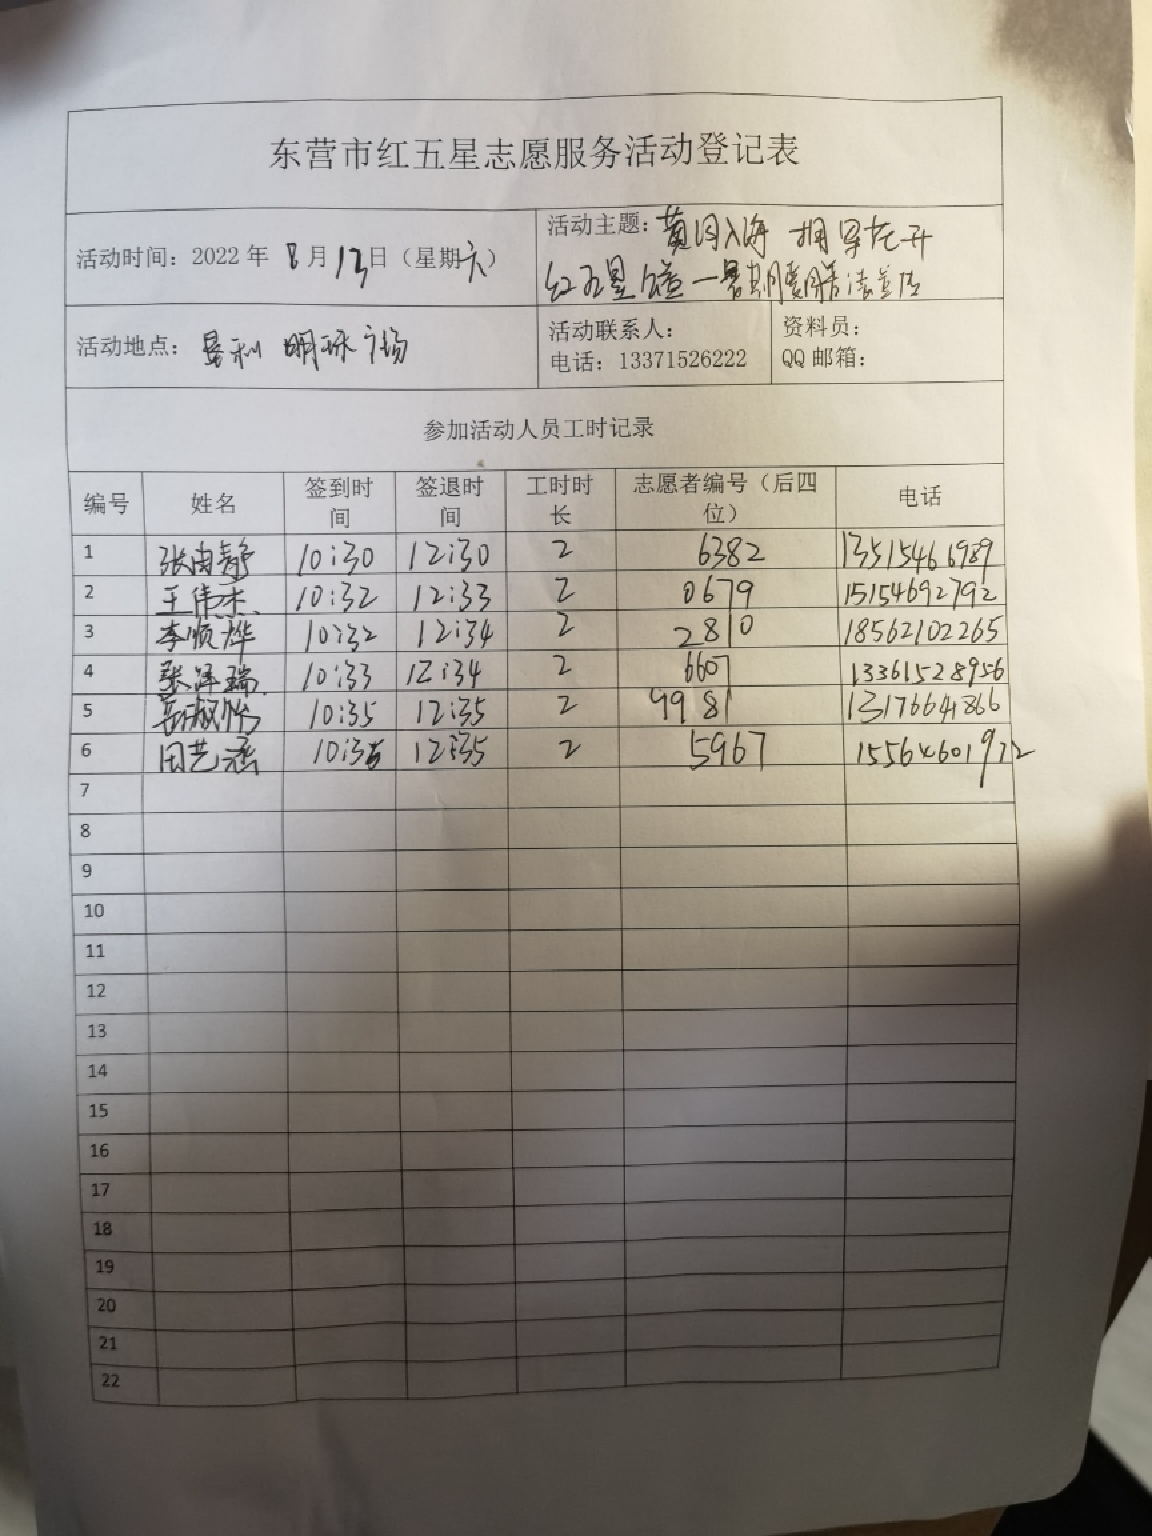 东营市红五星志愿服务活动登记表
活动时间：2022年 8月13日（星期六）
活动主题：黄河入海 拥军花开
红五星公益一暑期
活动地点：垦利 明珠广场
活动联系人：
电话：13371526222
资料员：
QQ邮箱：
参加活动人员工时记录
编号 姓名 签到时间 签退时间 工时时长 志愿者编号（后四位） 电话
1 张由静 10:30 12:30 2 6382 13515466989
2 王伟杰 10:32 12:33 2 0679 15154692792
3 李顺烨 10:32 12:34 2 2810 18562102265
4 张泽瑞 10:33 12:34 2 6607 13361528956
5 10:35 12:35 2 9981 13176641866
6 田艺涵 10:35 12:35 2 5967
7
8
9
10
11
12
13
14
15
16
17
18
19
20
21
22